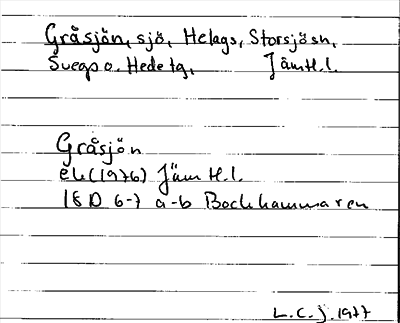 Gråsjön, sjö, Helags, Storsjö sn,
Svegs o. Hede tg, Jämtl.l.
Gråsjön
ek(1976) Jämtl.l.
18D 6-7 a-b Bockhammaren
L.C.J. 1977